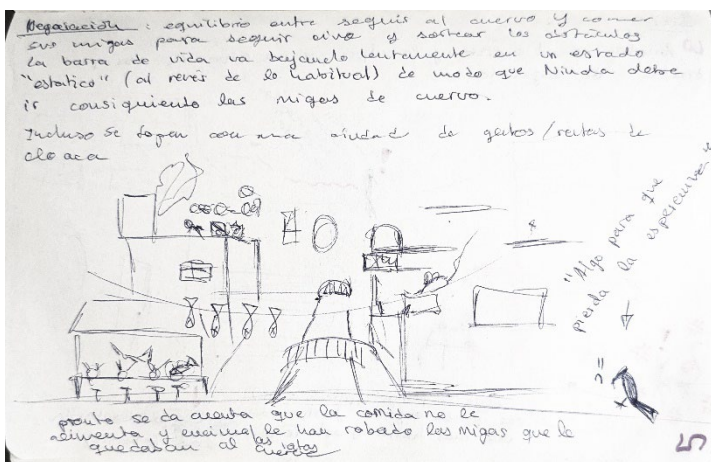 Negociación : equilibrio entre seguir al cuervo y comer
sus migas para seguir vivo y sortear los obstáculos
La barra de vida va bajando lentamente en un estado
"estatico" (al revés de lo habitual) de modo que Ninda debe
ir consiguiendo las migas de cuervo.
Incluso se topan con una ciudad de gatos/ratas de
cloaca
"Algo para que
pierda la esperanza"
pronto se da cuenta que la comida no le
alimenta y encima le han robado las migas que le
quedaban al cuervo
las ratas
5